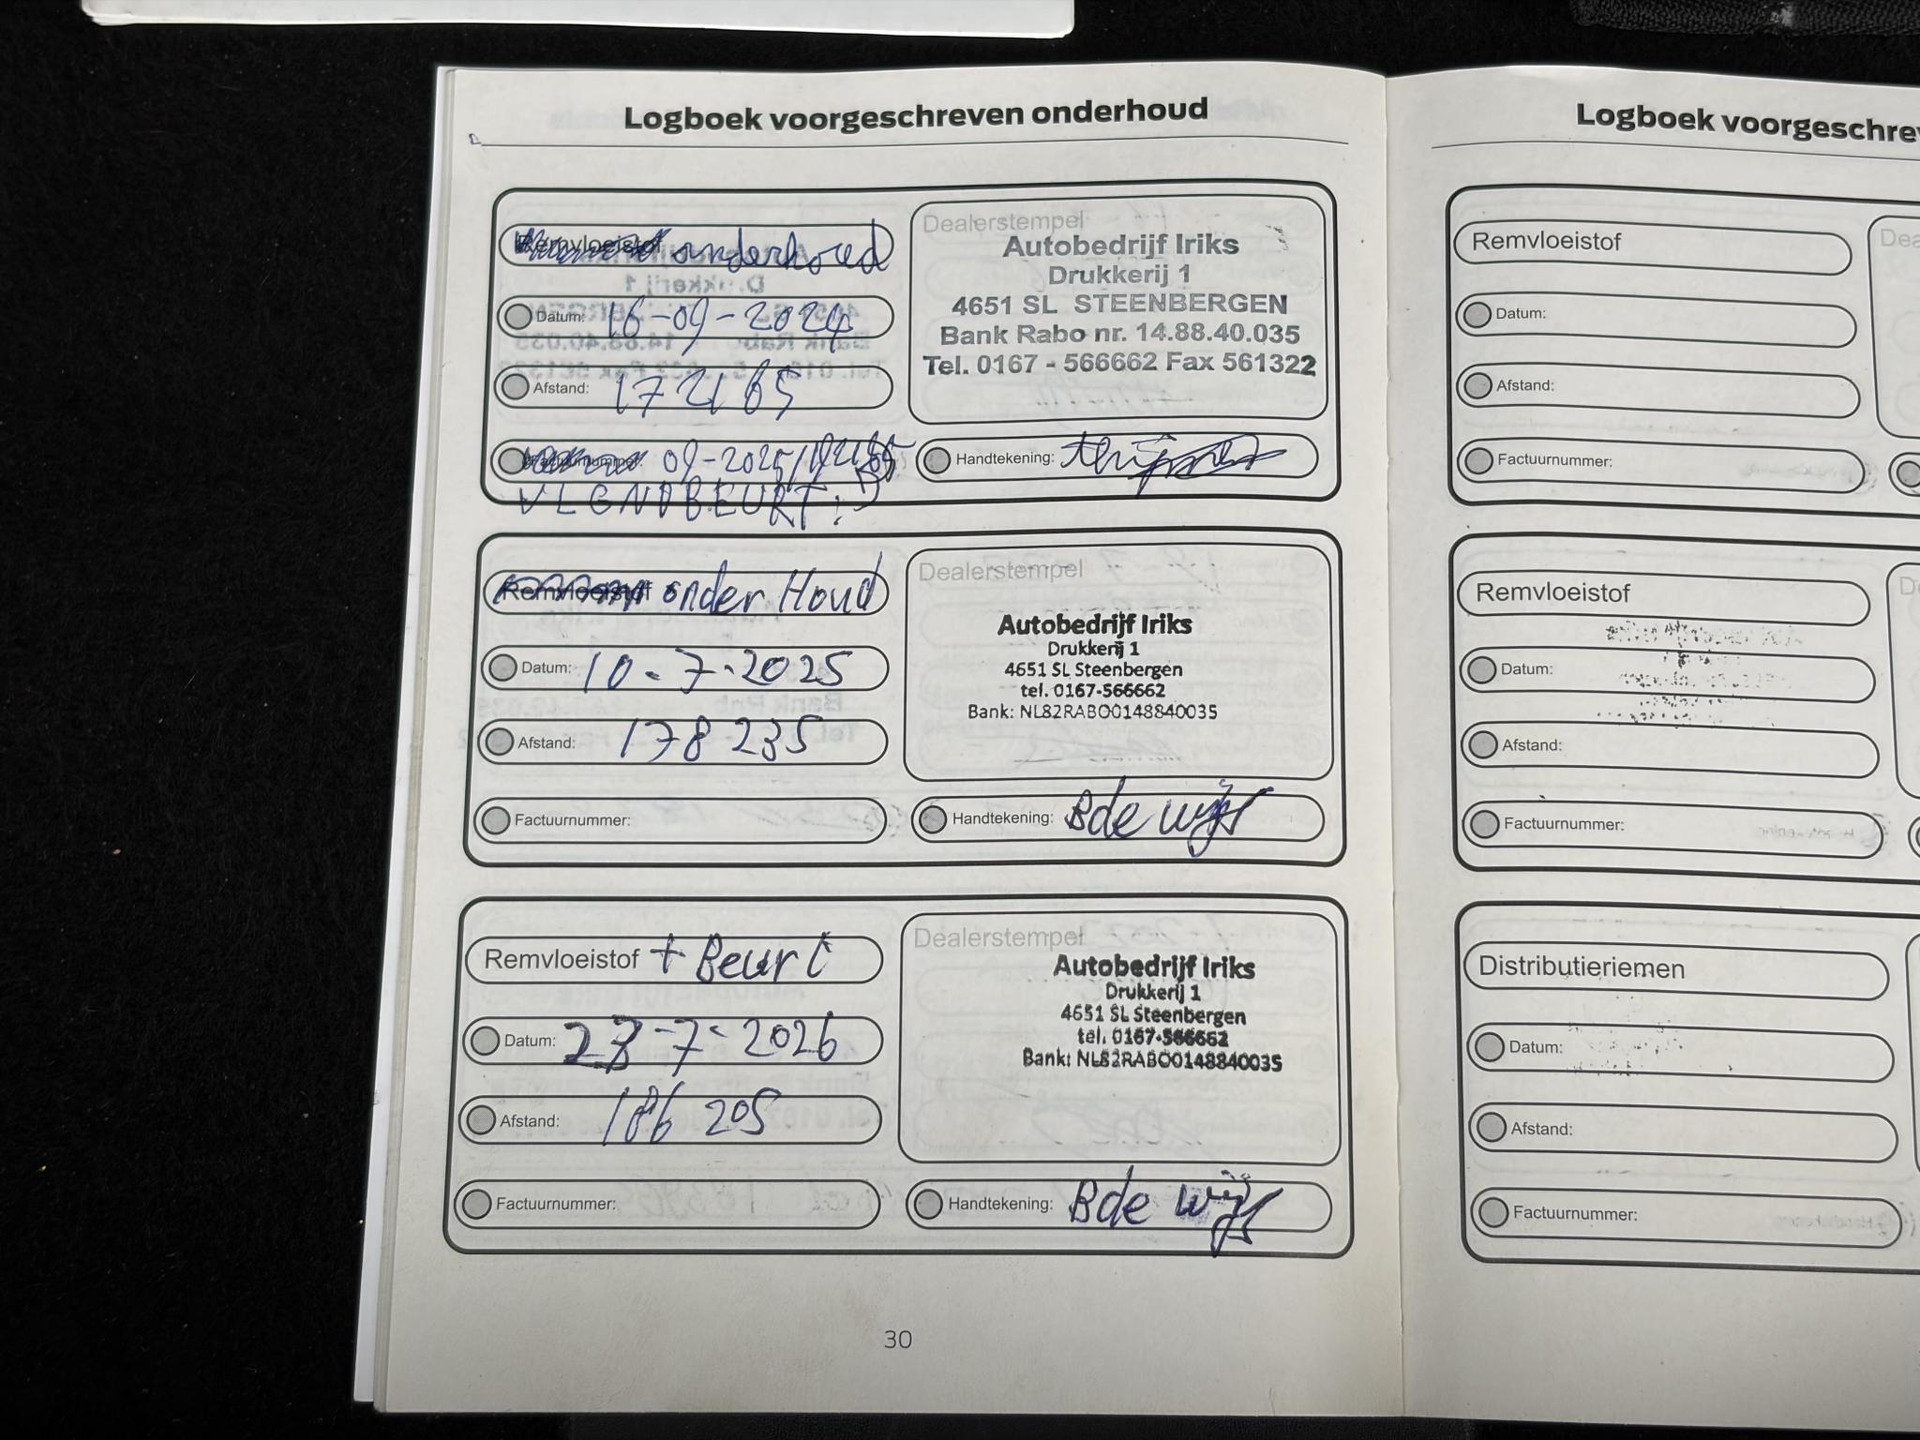 Logboek voorgeschreven onderhoud
Remvloeistof onderhoud
Datum: 16-09-2024
Afstand: 172165
Factuurnummer: 09-2025/192165
VLGNDBEURT:
Dealerstempel
Autobedrijf Iriks
Drukkerij 1
4651 SL STEENBERGEN
Bank Rabo nr. 14.88.40.035
Tel. 0167 - 566662 Fax 561322
Handtekening:
Remvloeistof onder Houd
Datum: 10-7-2025
Afstand: 178235
Factuurnummer:
Dealerstempel
Autobedrijf Iriks
Drukkerij 1
4651 SL Steenbergen
tel. 0167-566662
Bank: NL82RABO0148840035
Handtekening: B de Wijs
Remvloeistof + Beurt
Datum: 23-7-2026
Afstand: 186 205
Factuurnummer:
Dealerstempel
Autobedrijf Iriks
Drukkerij 1
4651 SL Steenbergen
tel. 0167-566662
Bank: NL82RABO0148840035
Handtekening: B de Wijs
30
Logboek voorgeschrev
Remvloeistof
Datum:
Afstand:
Factuurnummer:
Dea
Remvloeistof
Datum:
Afstand:
Factuurnummer:
D
Distributieriemen
Datum:
Afstand:
Factuurnummer: